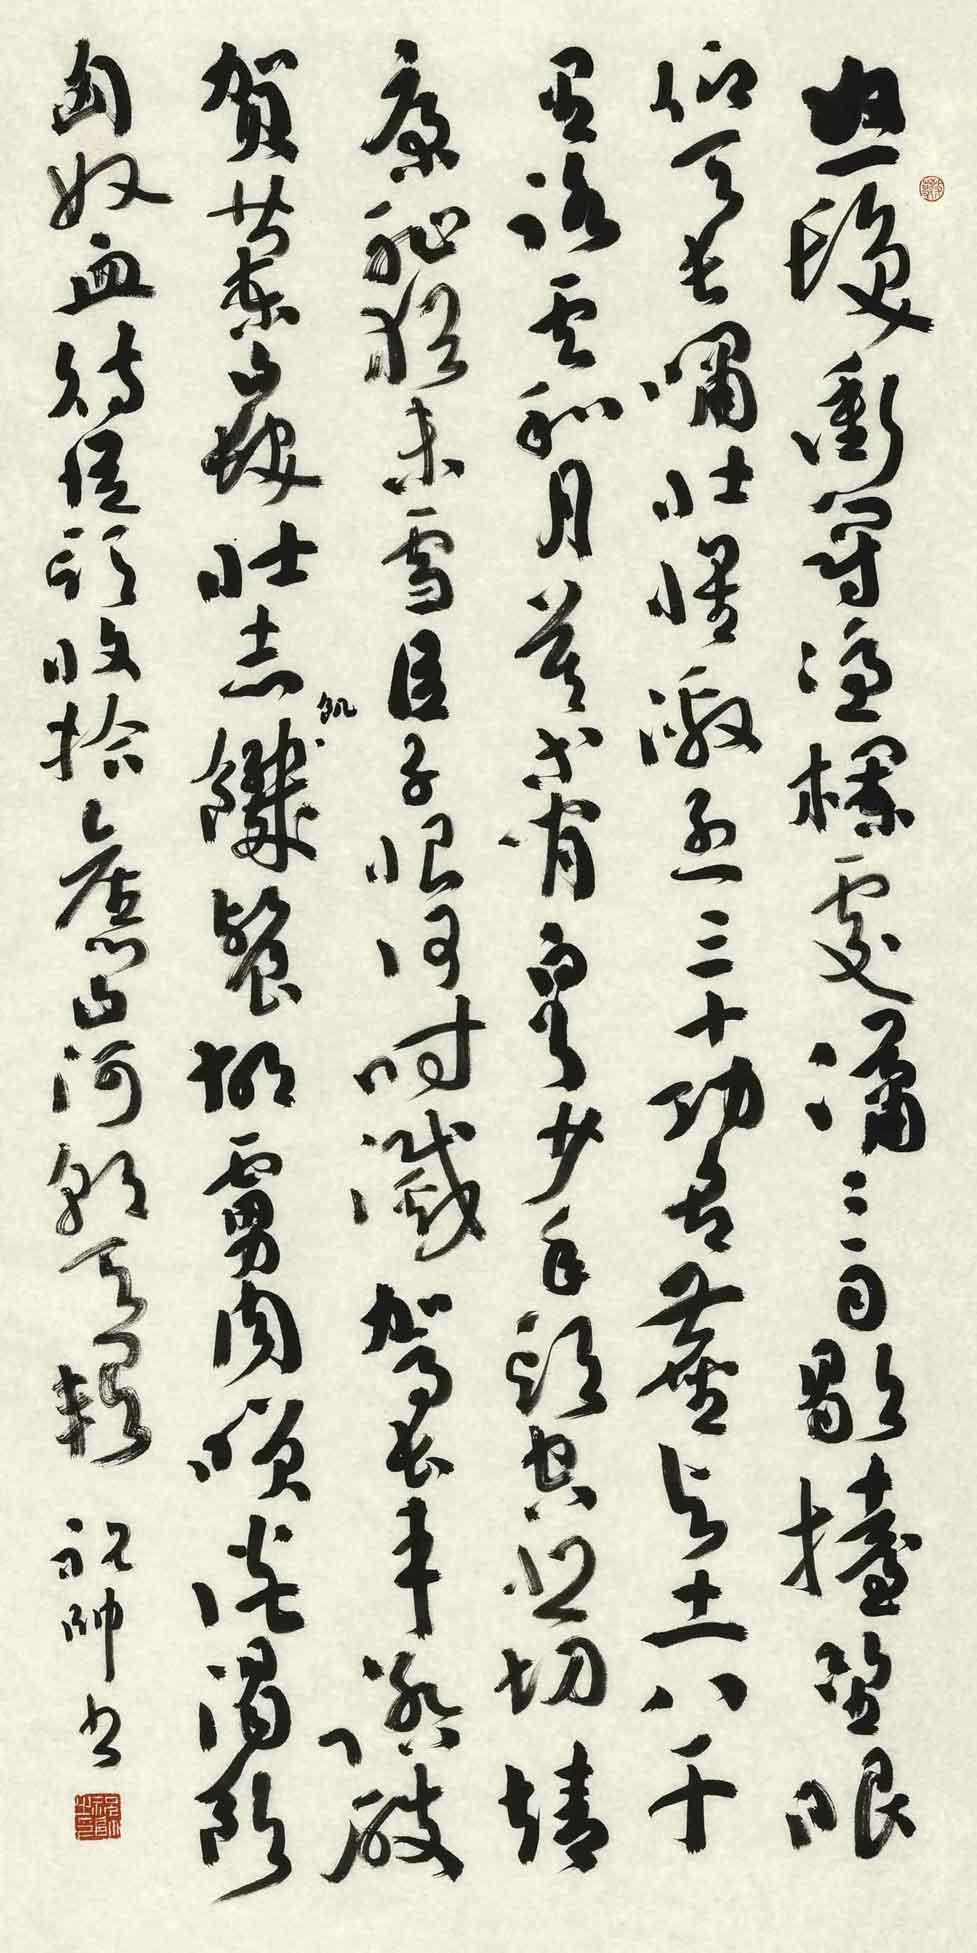 怒髮衝冠憑欄處瀟〻雨歇擡望眼
仰天長嘯壯懷激烈三十功名塵與土八千
里路雲和月莫等閒白了少年頭空悲切靖
康恥猶未雪臣子恨何時滅駕長車踏破
賀蘭山缺壯志饑餐胡虜肉咲談渴飲
飢
匈奴血待從頭收拾舊山河朝天闕
祝帥書
祝帥之印